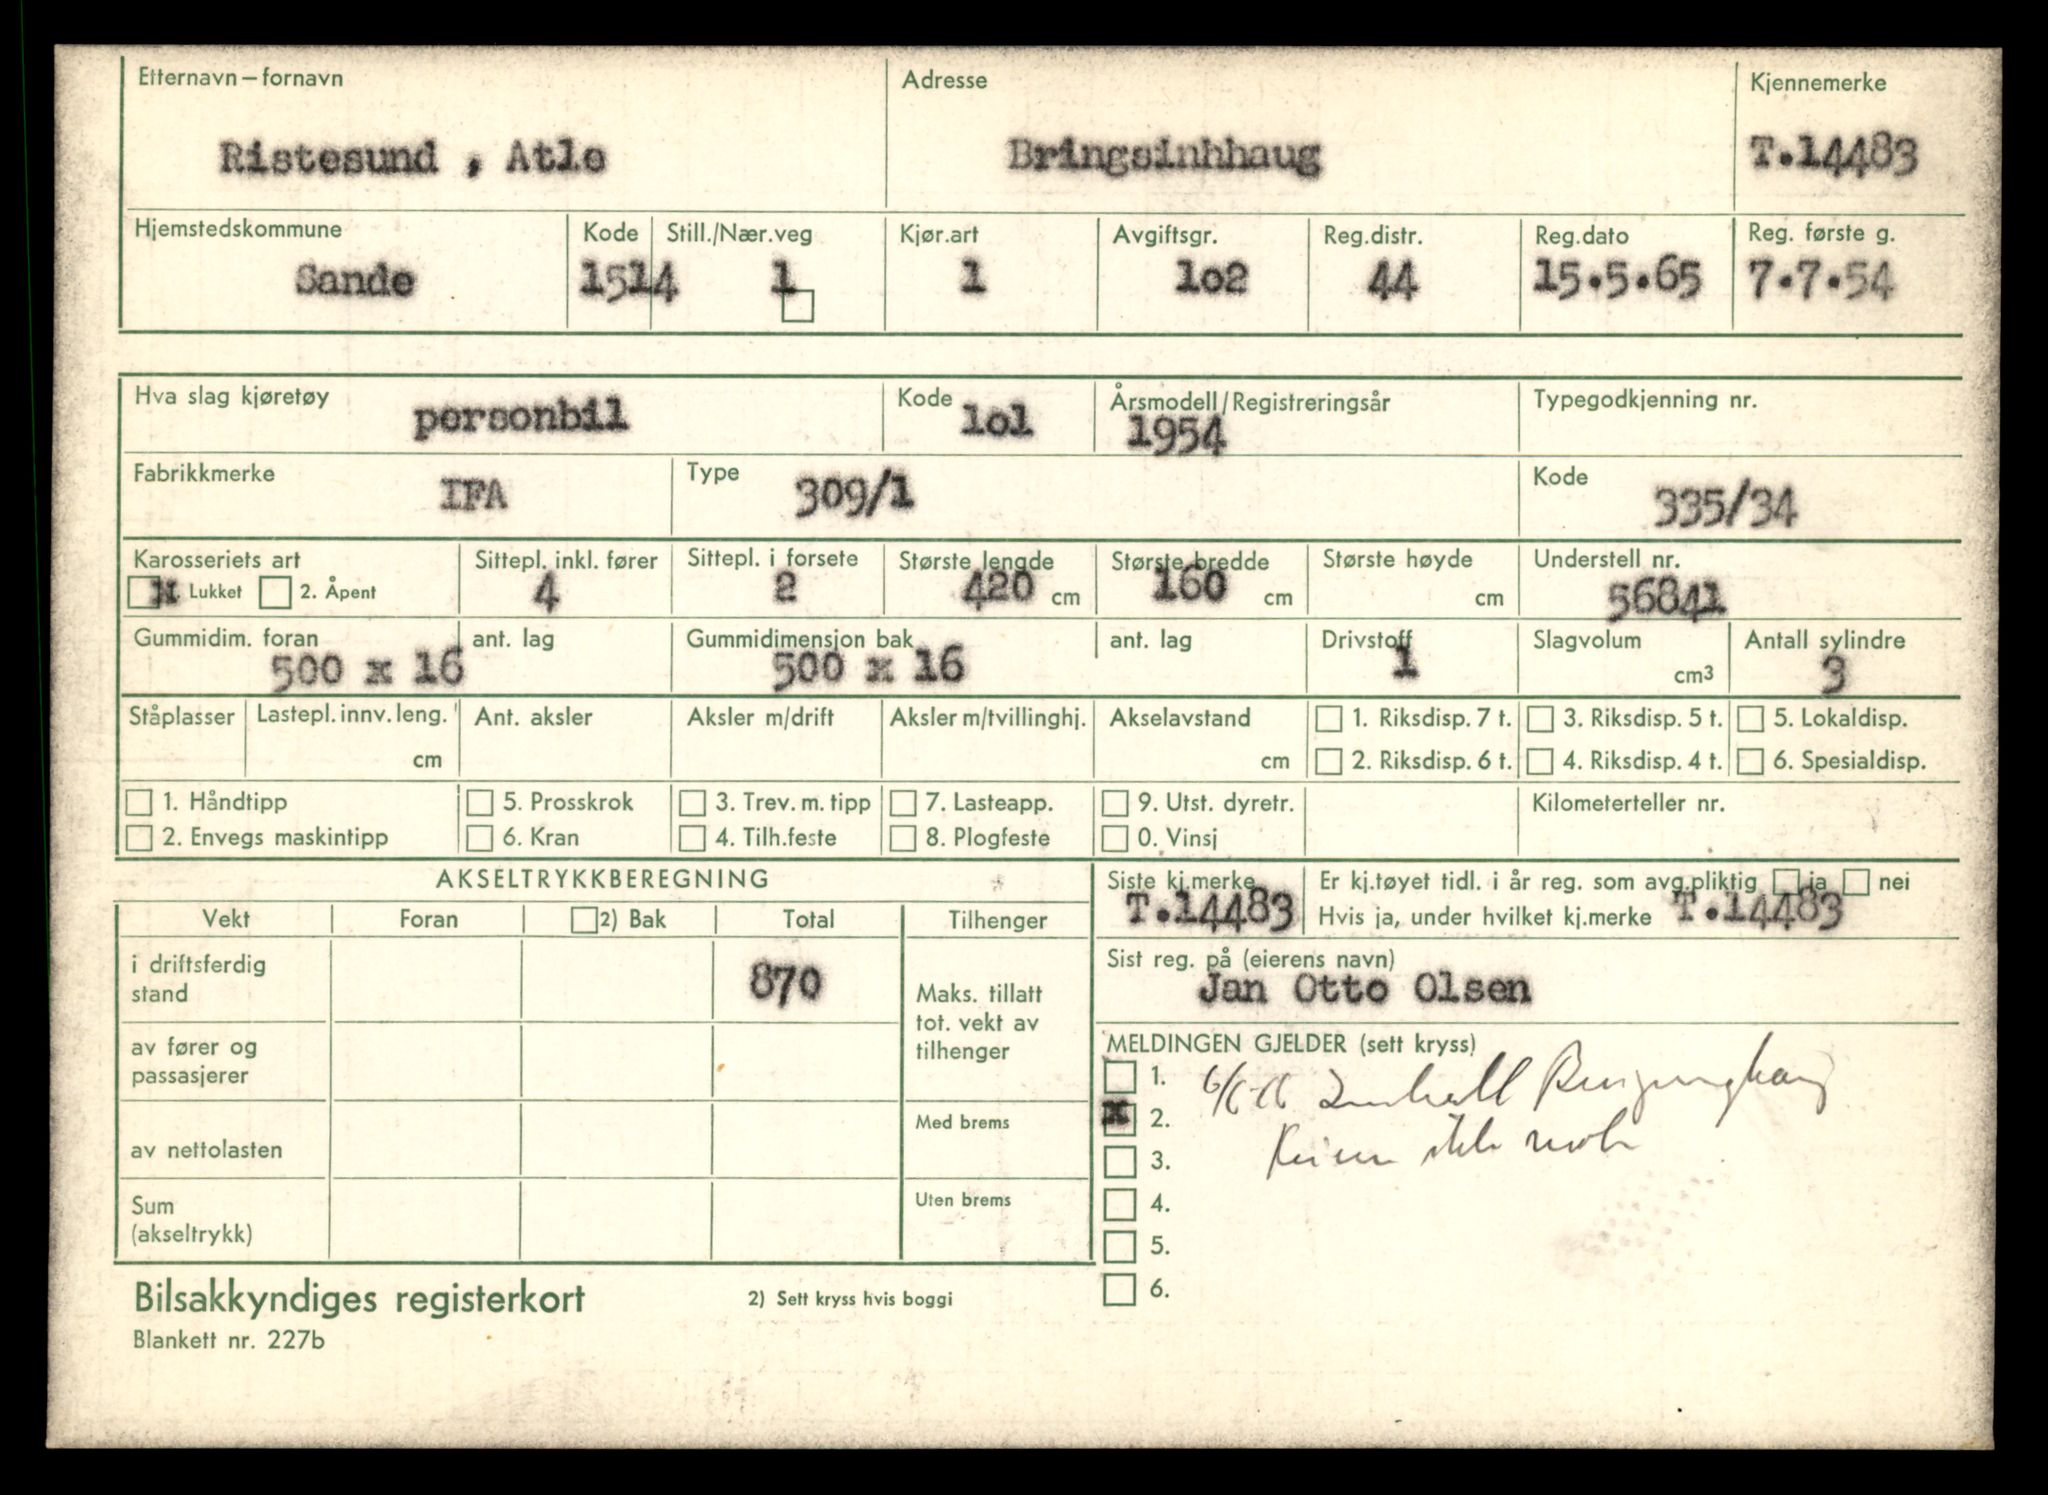 Etternavn – fornavn Adresse Kjennemerke
Ristesund , Atle Bringsinhhaug T.14483
Hjemstedskommune Kode Still./Nær.veg Kjør.art Avgiftsgr. Reg.distr. Reg.dato Reg. første g.
Sande 1514 1 1 1o2 44 15.5.65 7.7.54
Hva slag kjøretøy Kode Årsmodell/Registreringsår Typegodkjenning nr.
personbil 1o1 1954
Fabrikkmerke Type Kode
IFA 309/1 335/34
Karosseriets art Sittepl. inkl. fører Sittepl. i forsete Største lengde Største bredde Største høyde Understell nr.
x Lukket 2. Åpent 4 2 420 cm 160 cm cm 56841
Gummidim. foran ant. lag Gummidimensjon bak ant. lag Drivstoff Slagvolum Antall sylindre
500 x 16 500 x 16 1 cm3 3
Ståplasser Lastepl. innv. leng. Ant. aksler Aksler m/drift Aksler m/tvillinghj. Akselavstand 1. Riksdisp. 7 t. 3. Riksdisp. 5 t. 5. Lokaldisp.
cm cm 2. Riksdisp. 6 t. 4. Riksdisp. 4 t. 6. Spesialdisp.
1. Håndtipp 5. Prosskrok 3. Trev. m. tipp 7. Lasteapp. 9. Utst. dyretr. Kilometerteller nr.
2. Envegs maskintipp 6. Kran 4. Tilh.feste 8. Plogfeste 0. Vinsj
AKSELTRYKKBEREGNING
Siste kj.merke Er kj.tøyet tidl. i år reg. som avg.pliktig ja nei
T.14483 Hvis ja, under hvilket kj.merke T.14483
Vekt Foran 2) Bak Total Tilhenger
Sist reg. på (eierens navn)
Jan Otto Olsen
i driftsferdig
stand 870
Maks. tillatt
tot. vekt av
tilhenger
av fører og
passasjerer
MELDINGEN GJELDER (sett kryss)
1.
x 2.
ikke
3.
4.
5.
6.
av nettolasten Med brems
Sum
(akseltrykk) Uten brems
Bilsakkyndiges registerkort 2) Sett kryss hvis boggi
Blankett nr. 227b